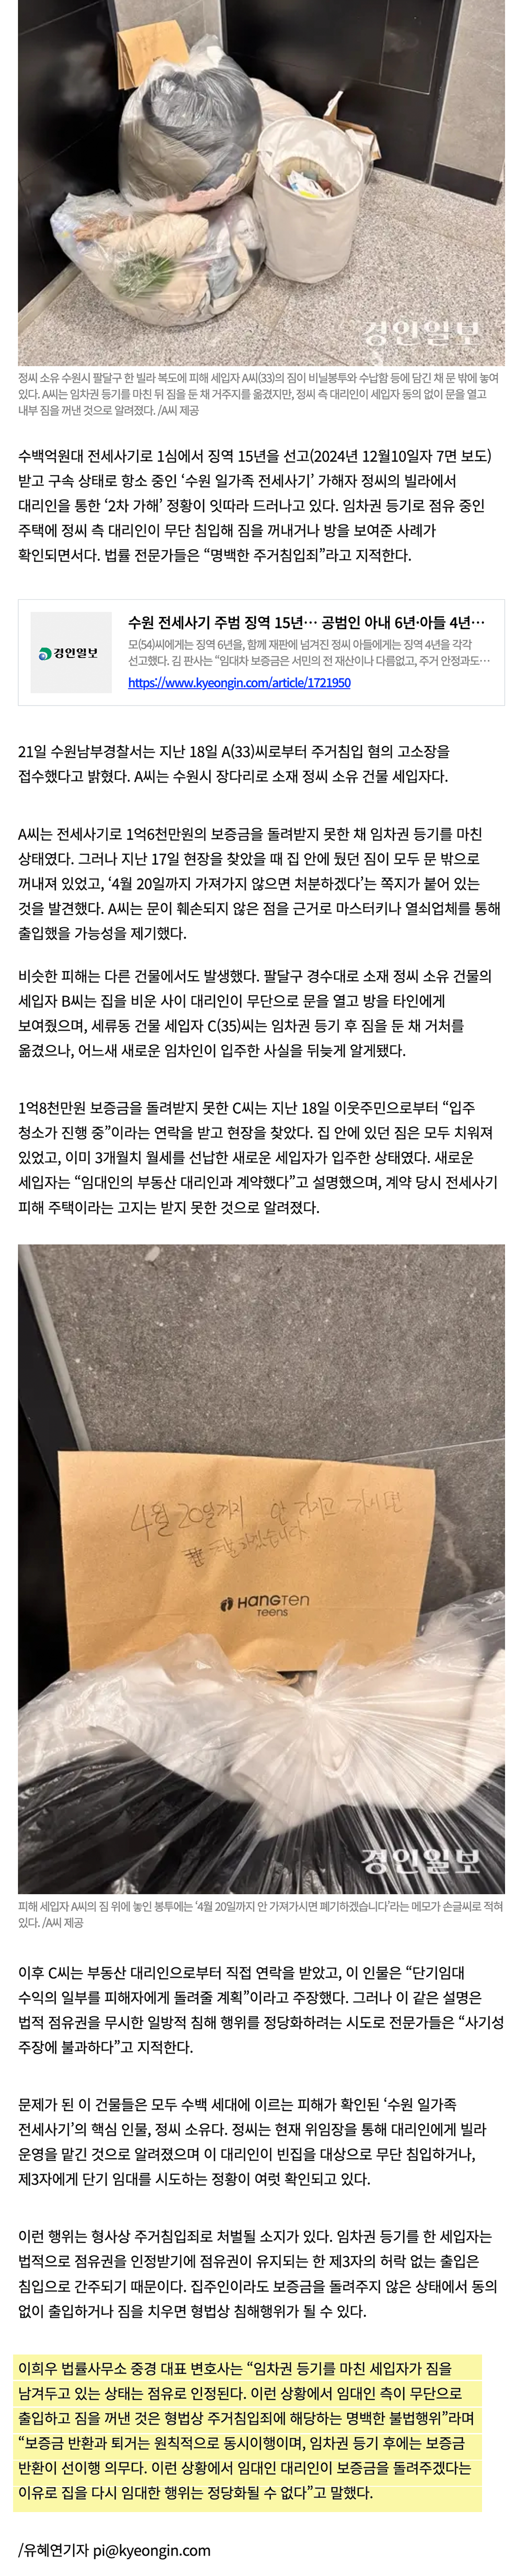 경인일보
정씨 소유 수원시 팔달구 한 빌라 복도에 피해 세입자 A씨(33)의 짐이 비닐봉투와 수납함 등에 담긴 채 문 밖에 놓여
있다. A씨는 임차권 등기를 마친 뒤 짐을 둔 채 거주지를 옮겼지만, 정씨 측 대리인이 세입자 동의 없이 문을 열고
내부 짐을 꺼낸 것으로 알려졌다. /A씨 제공
수백억원대 전세사기로 1심에서 징역 15년을 선고(2024년 12월10일자 7면 보도)
받고 구속 상태로 항소 중인 ‘수원 일가족 전세사기’ 가해자 정씨의 빌라에서
대리인을 통한 ‘2차 가해’ 정황이 잇따라 드러나고 있다. 임차권 등기로 점유 중인
주택에 정씨 측 대리인이 무단 침입해 짐을 꺼내거나 방을 보여준 사례가
확인되면서다. 법률 전문가들은 “명백한 주거침입죄”라고 지적한다.
경인일보
수원 전세사기 주범 징역 15년… 공범인 아내 6년·아들 4년…
모(54)씨에게는 징역 6년을, 함께 재판에 넘겨진 정씨 아들에게는 징역 4년을 각각
선고했다. 김 판사는 “임대차 보증금은 서민의 전 재산이나 다름없고, 주거 안정과도…
https://www.kyeongin.com/article/1721950
21일 수원남부경찰서는 지난 18일 A(33)씨로부터 주거침입 혐의 고소장을
접수했다고 밝혔다. A씨는 수원시 장다리로 소재 정씨 소유 건물 세입자다.
A씨는 전세사기로 1억6천만원의 보증금을 돌려받지 못한 채 임차권 등기를 마친
상태였다. 그러나 지난 17일 현장을 찾았을 때 집 안에 뒀던 짐이 모두 문 밖으로
꺼내져 있었고, ‘4월 20일까지 가져가지 않으면 처분하겠다’는 쪽지가 붙어 있는
것을 발견했다. A씨는 문이 훼손되지 않은 점을 근거로 마스터키나 열쇠업체를 통해
출입했을 가능성을 제기했다.
비슷한 피해는 다른 건물에서도 발생했다. 팔달구 경수대로 소재 정씨 소유 건물의
세입자 B씨는 집을 비운 사이 대리인이 무단으로 문을 열고 방을 타인에게
보여줬으며, 세류동 건물 세입자 C(35)씨는 임차권 등기 후 짐을 둔 채 거처를
옮겼으나, 어느새 새로운 임차인이 입주한 사실을 뒤늦게 알게됐다.
1억8천만원 보증금을 돌려받지 못한 C씨는 지난 18일 이웃주민으로부터 “입주
청소가 진행 중”이라는 연락을 받고 현장을 찾았다. 집 안에 있던 짐은 모두 치워져
있었고, 이미 3개월치 월세를 선납한 새로운 세입자가 입주한 상태였다. 새로운
세입자는 “임대인의 부동산 대리인과 계약했다”고 설명했으며, 계약 당시 전세사기
피해 주택이라는 고지는 받지 못한 것으로 알려졌다.
4월 20일까지 안 가지고 가시면
처분하겠습니다
HANGTEN
TEENS
경인일보
피해 세입자 A씨의 짐 위에 놓인 봉투에는 ‘4월 20일까지 안 가져가시면 폐기하겠습니다’라는 메모가 손글씨로 적혀
있다. /A씨 제공
이후 C씨는 부동산 대리인으로부터 직접 연락을 받았고, 이 인물은 “단기임대
수익의 일부를 피해자에게 돌려줄 계획”이라고 주장했다. 그러나 이 같은 설명은
법적 점유권을 무시한 일방적 침해 행위를 정당화하려는 시도로 전문가들은 “사기성
주장에 불과하다”고 지적한다.
문제가 된 이 건물들은 모두 수백 세대에 이르는 피해가 확인된 ‘수원 일가족
전세사기’의 핵심 인물, 정씨 소유다. 정씨는 현재 위임장을 통해 대리인에게 빌라
운영을 맡긴 것으로 알려졌으며 이 대리인이 빈집을 대상으로 무단 침입하거나,
제3자에게 단기 임대를 시도하는 정황이 여럿 확인되고 있다.
이런 행위는 형사상 주거침입죄로 처벌될 소지가 있다. 임차권 등기를 한 세입자는
법적으로 점유권을 인정받기에 점유권이 유지되는 한 제3자의 허락 없는 출입은
침입으로 간주되기 때문이다. 집주인이라도 보증금을 돌려주지 않은 상태에서 동의
없이 출입하거나 짐을 치우면 형법상 침해행위가 될 수 있다.
이희우 법률사무소 중경 대표 변호사는 “임차권 등기를 마친 세입자가 짐을
남겨두고 있는 상태는 점유로 인정된다. 이런 상황에서 임대인 측이 무단으로
출입하고 짐을 꺼낸 것은 형법상 주거침입죄에 해당하는 명백한 불법행위”라며
“보증금 반환과 퇴거는 원칙적으로 동시이행이며, 임차권 등기 후에는 보증금
반환이 선이행 의무다. 이런 상황에서 임대인 대리인이 보증금을 돌려주겠다는
이유로 집을 다시 임대한 행위는 정당화될 수 없다”고 말했다.
/유혜연기자 pi@kyeongin.com